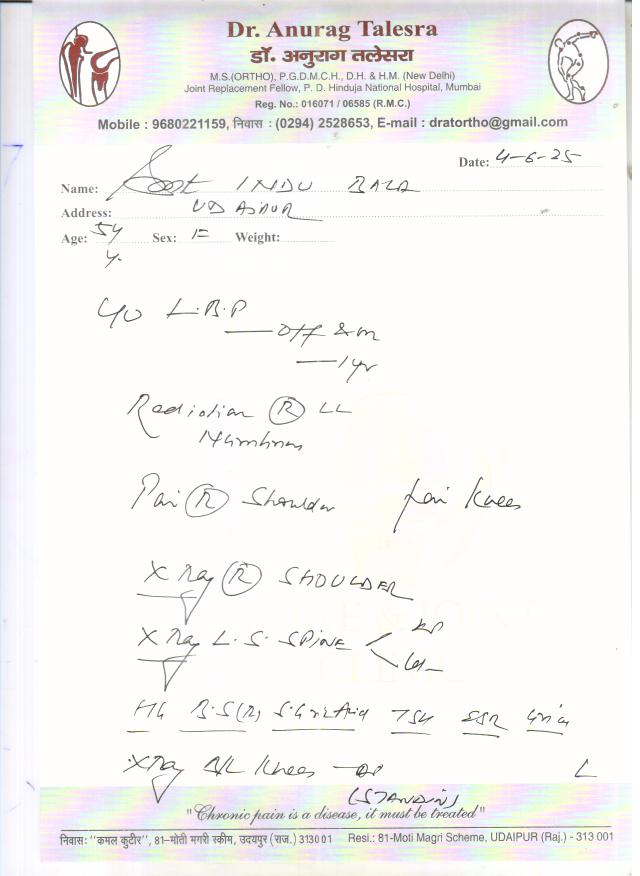 Dr. Anurag Talesra
डॉ. अनुराग तलेसरा
M.S.(ORTHO), P.G.D.M.C.H., D.H. & H.M. (New Delhi)
Joint Replacement Fellow, P. D. Hinduja National Hospital, Mumbai
Reg. No.: 016071 / 06585 (R.M.C.)
Mobile : 9680221159, निवास : (0294) 2528653, E-mail : dratortho@gmail.com
Date: 4-6-25
Name: INDU BALA
Address: UDAIPUR
Age: 54 Sex: F Weight:
y.
C/O L.B.P
— off & on
— 1 yr
Radiation (R) LL
Numbness
Pain (R) Shoulder Pain Knees
X Ray (R) SHOULDER
X Ray L.S. SPINE < AP
Lat
Hb B.S(R) S.Uric Acid TSH ESR Urine
X Ray B/L Knees — AP
(STANDING)
"Chronic pain is a disease, it must be treated"
निवास: "कमल कुटीर", 81–मोती मगरी स्कीम, उदयपुर (राज.) 313001 Resi.: 81-Moti Magri Scheme, UDAIPUR (Raj.) - 313 001